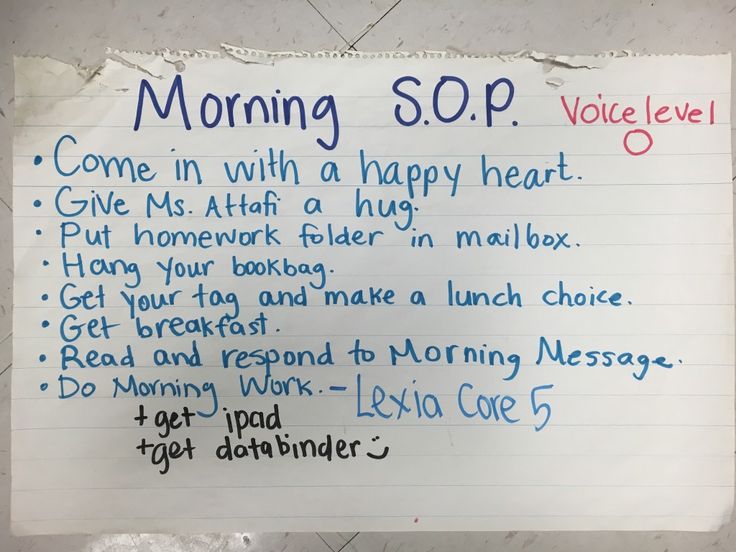 Morning S.O.P.
Voice level
0
• Come in with a happy heart.
• Give Ms. Attafi a hug.
• Put homework folder in mailbox.
• Hang your bookbag.
• Get your tag and make a lunch choice.
• Get breakfast.
• Read and respond to Morning Message.
• Do Morning Work. - Lexia Core 5
+ get ipad
+ get databinder